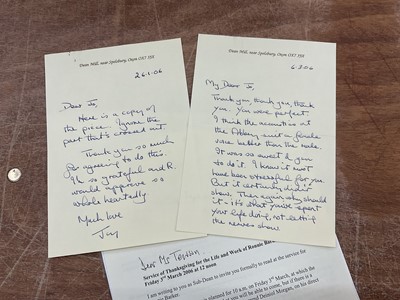 Dean Mill, near Spelsbury, Oxon OX7 3JS
26.1.06
Dear Jo,
Here is a copy of
the piece. Ignore the
part that's crossed out
Thank you so much
for agreeing to do this.
I'm so grateful and R.
would approve so
whole heartedly
Much love
Joy
Dean Mill, near Spelsbury, Oxon OX7
6.3.06
My Dear Jo,
Thank you, thank you, thank
you. You were perfect.
I think the acoustics at
the Abbey suit a female
voice better than the male.
It was so sweet of you
to do it. I know it must
have been stressful for you.
But it certainly didn't
show. Then again why should
it – it's what you've spent
your life doing, not letting
the nerves show.
Dear Ms
Service of Thanksgiving for the Life and Work of Ronnie
Friday 3rd March 2006 at 12 noon
I am writing to you as Sub-Dean to invite you formally to read at the service for
Barker.
planned for 10 a.m. on Friday 3rd March, at which the
will be able to come, but if there is a
and Désirée Morgan, on his direct